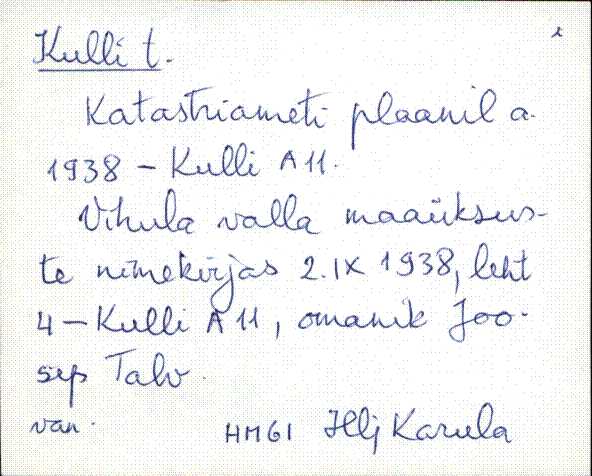 Kulli t.
Katastriameti plaanil a.
1938 - Kulli A 11.
Vihula valla maaüksus-
te nimekirjas 2.IX 1938, leht
4 - Kulli A 11, omanik Joo-
sep Talv.
van. HMGI Hlj Karula